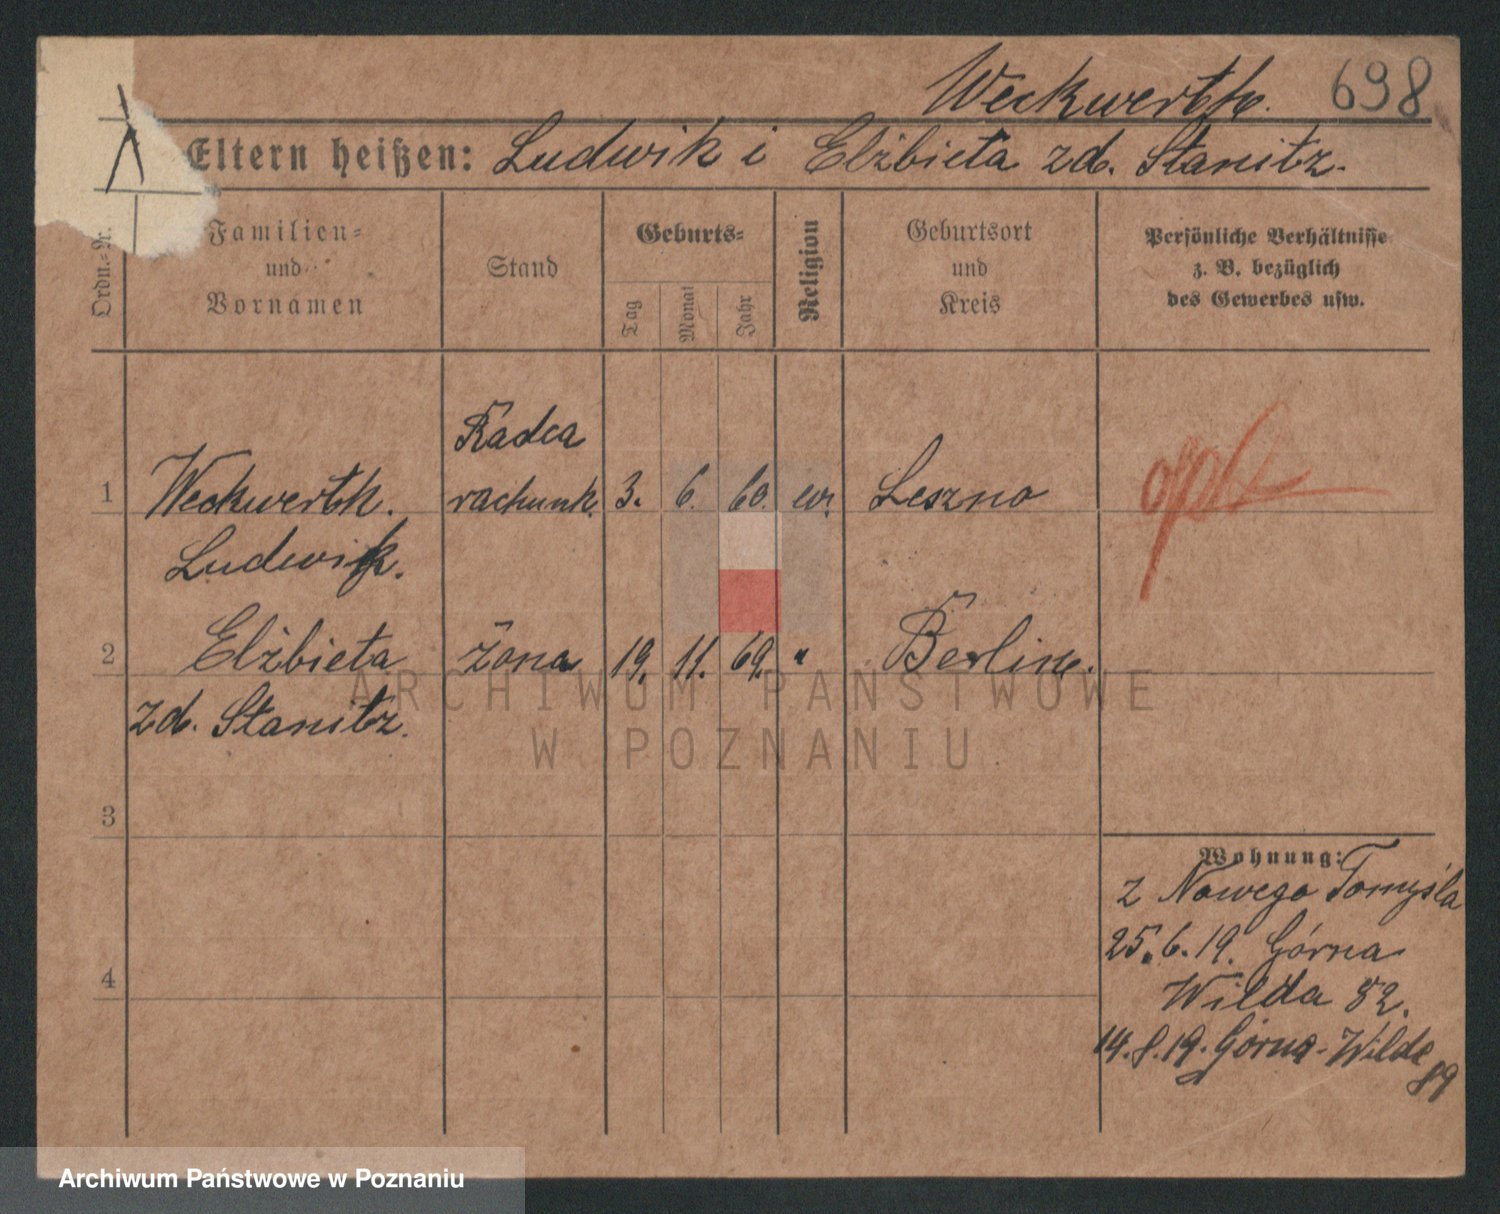 Weckwerth. 698
Eltern heißen: Ludwik i Elżbieta zd. Stanitz.
Ordn.-Nr.
Familien-
und
Vornamen
Stand
Geburts-
Tag
Monat
Jahr
Religion
Geburtsort
und
Kreis
Persönliche Verhältnisse
z. B. bezüglich
des Gewerbes usw.
Radca
1 Weckwerth. rachunk. 3. 6. 60. ew. Leszno opt
Ludwik.
2 Elżbieta żona 19. 11. 69. " Berlin.
zd. Stanitz.
3
4
Wohnung:
z Nowego Tomyśla
25.6.19. Górna
Wilda 82.
14.8.19. Górna-Wilda
89
ARCHIWUM PAŃSTWOWE
W POZNANIU
Archiwum Państwowe w Poznaniu